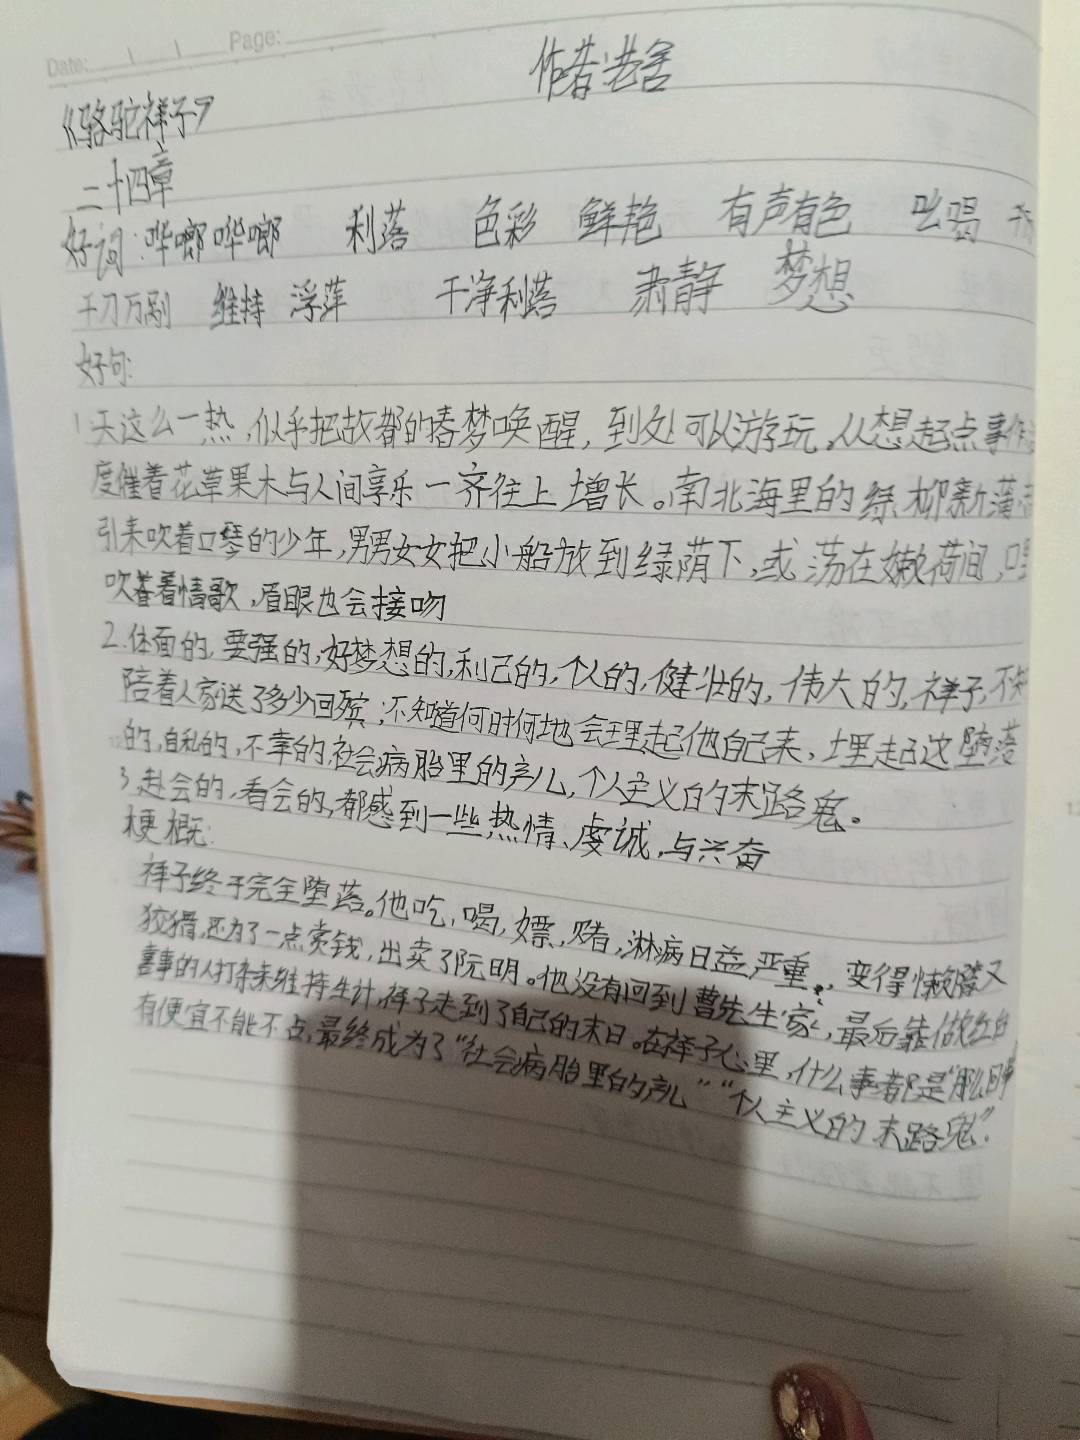 Date: Page:
作者:老舍
《骆驼祥子》
二十四章
好词:哗啷哗啷 利落 色彩 鲜艳 有声有色 吆喝
千刀万剐 维持 浮萍 干净利落 肃静 梦想
好句:
1.天这么一热,似乎把故都的春梦唤醒,到处可以游玩,人人想起点事作
度催着花草果木与人间享乐一齐往上增长。南北海里的绿柳新蒲
引来吹着口琴的少年,男男女女把小船放到绿荫下,或荡在嫩荷间,口里
吹着情歌,眉眼也会接吻
2.体面的,要强的,好梦想的,利己的,个人的,健壮的,伟大的,祥子,不知
陪着人家送了多少回殡,不知道何时何地会埋起他自己来,埋起这堕落
的,自私的,不幸的,社会病胎里的产儿,个人主义的末路鬼。
3.赴会的,看会的,都感到一些热情、虔诚,与兴奋
梗概:
祥子终于完全堕落。他吃,喝,嫖,赌,淋病日益严重,变得懒惰又
狡猾,还为了一点卖钱,出卖了阮明。他没有回到曹先生家,最后靠做红白
喜事的人打杂来维持生计,祥子走到了自己的末日。在祥子心里,什么事都是"那么回事
有便宜不能不占,最终成为了"社会病胎里的产儿""个人主义的末路鬼".